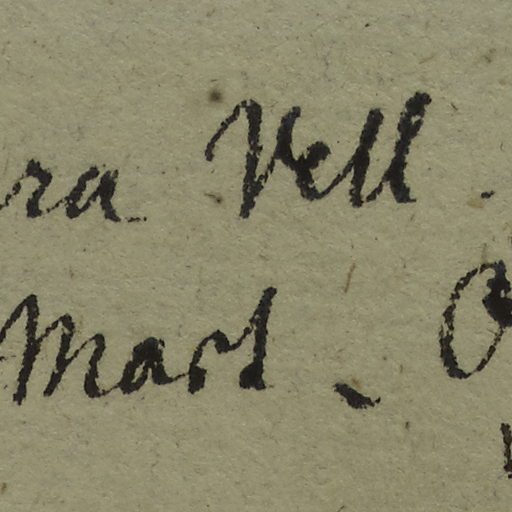 ra Vell.
Mart -